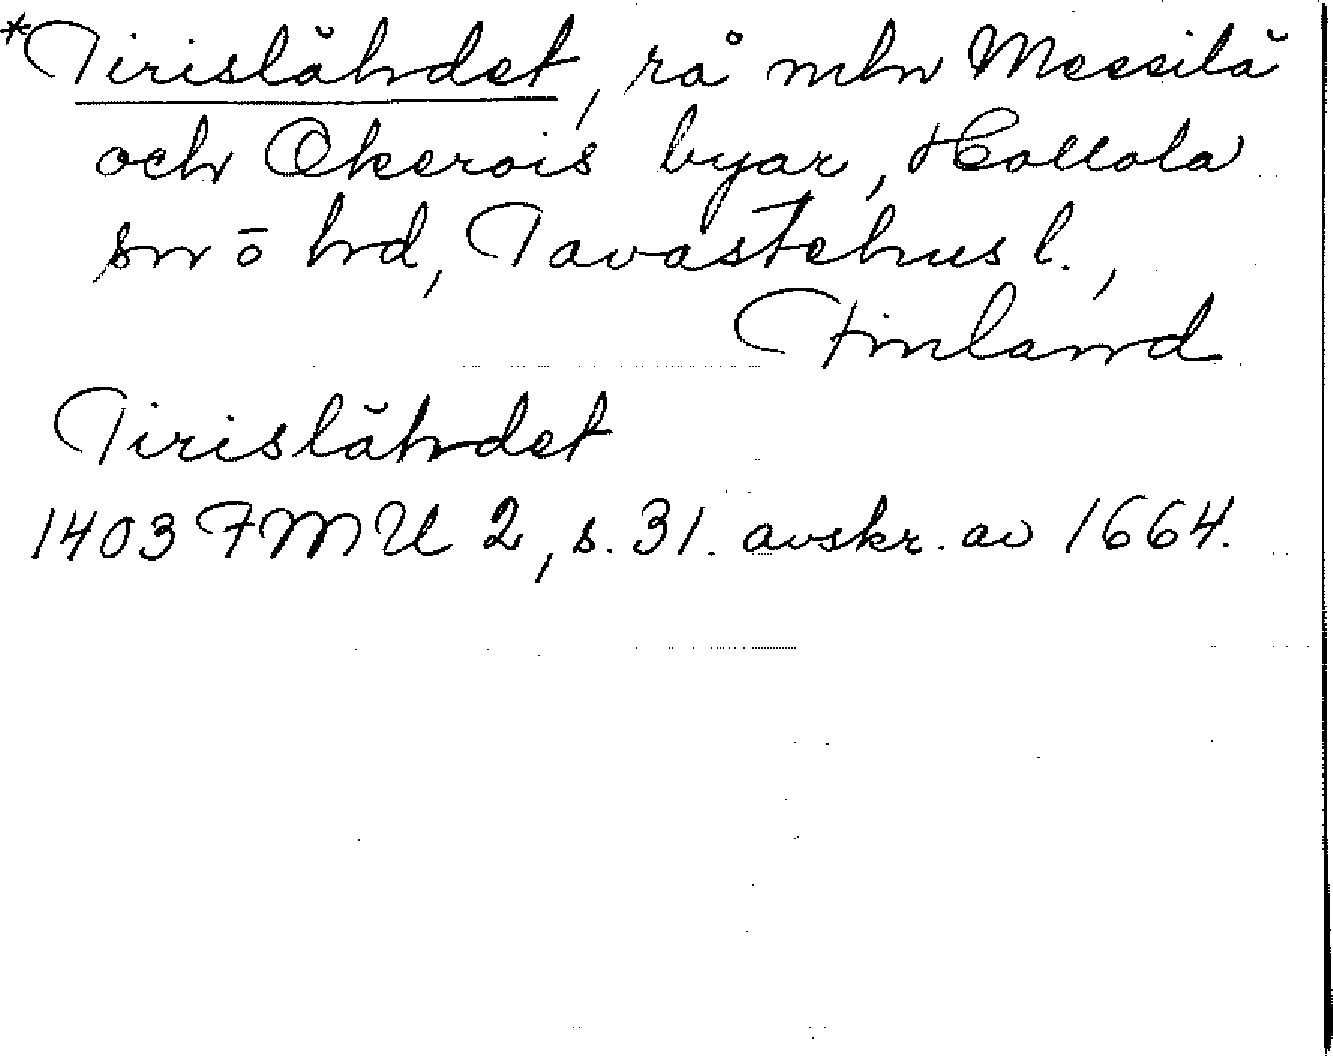 *Tirislähdet, rå mln Messilä
och Okerois byar, Hollola
sn o hd, Tavastehus l.,
Finland
Tirislähdet
1403 FMU 2, s. 31. avskr. av 1664.